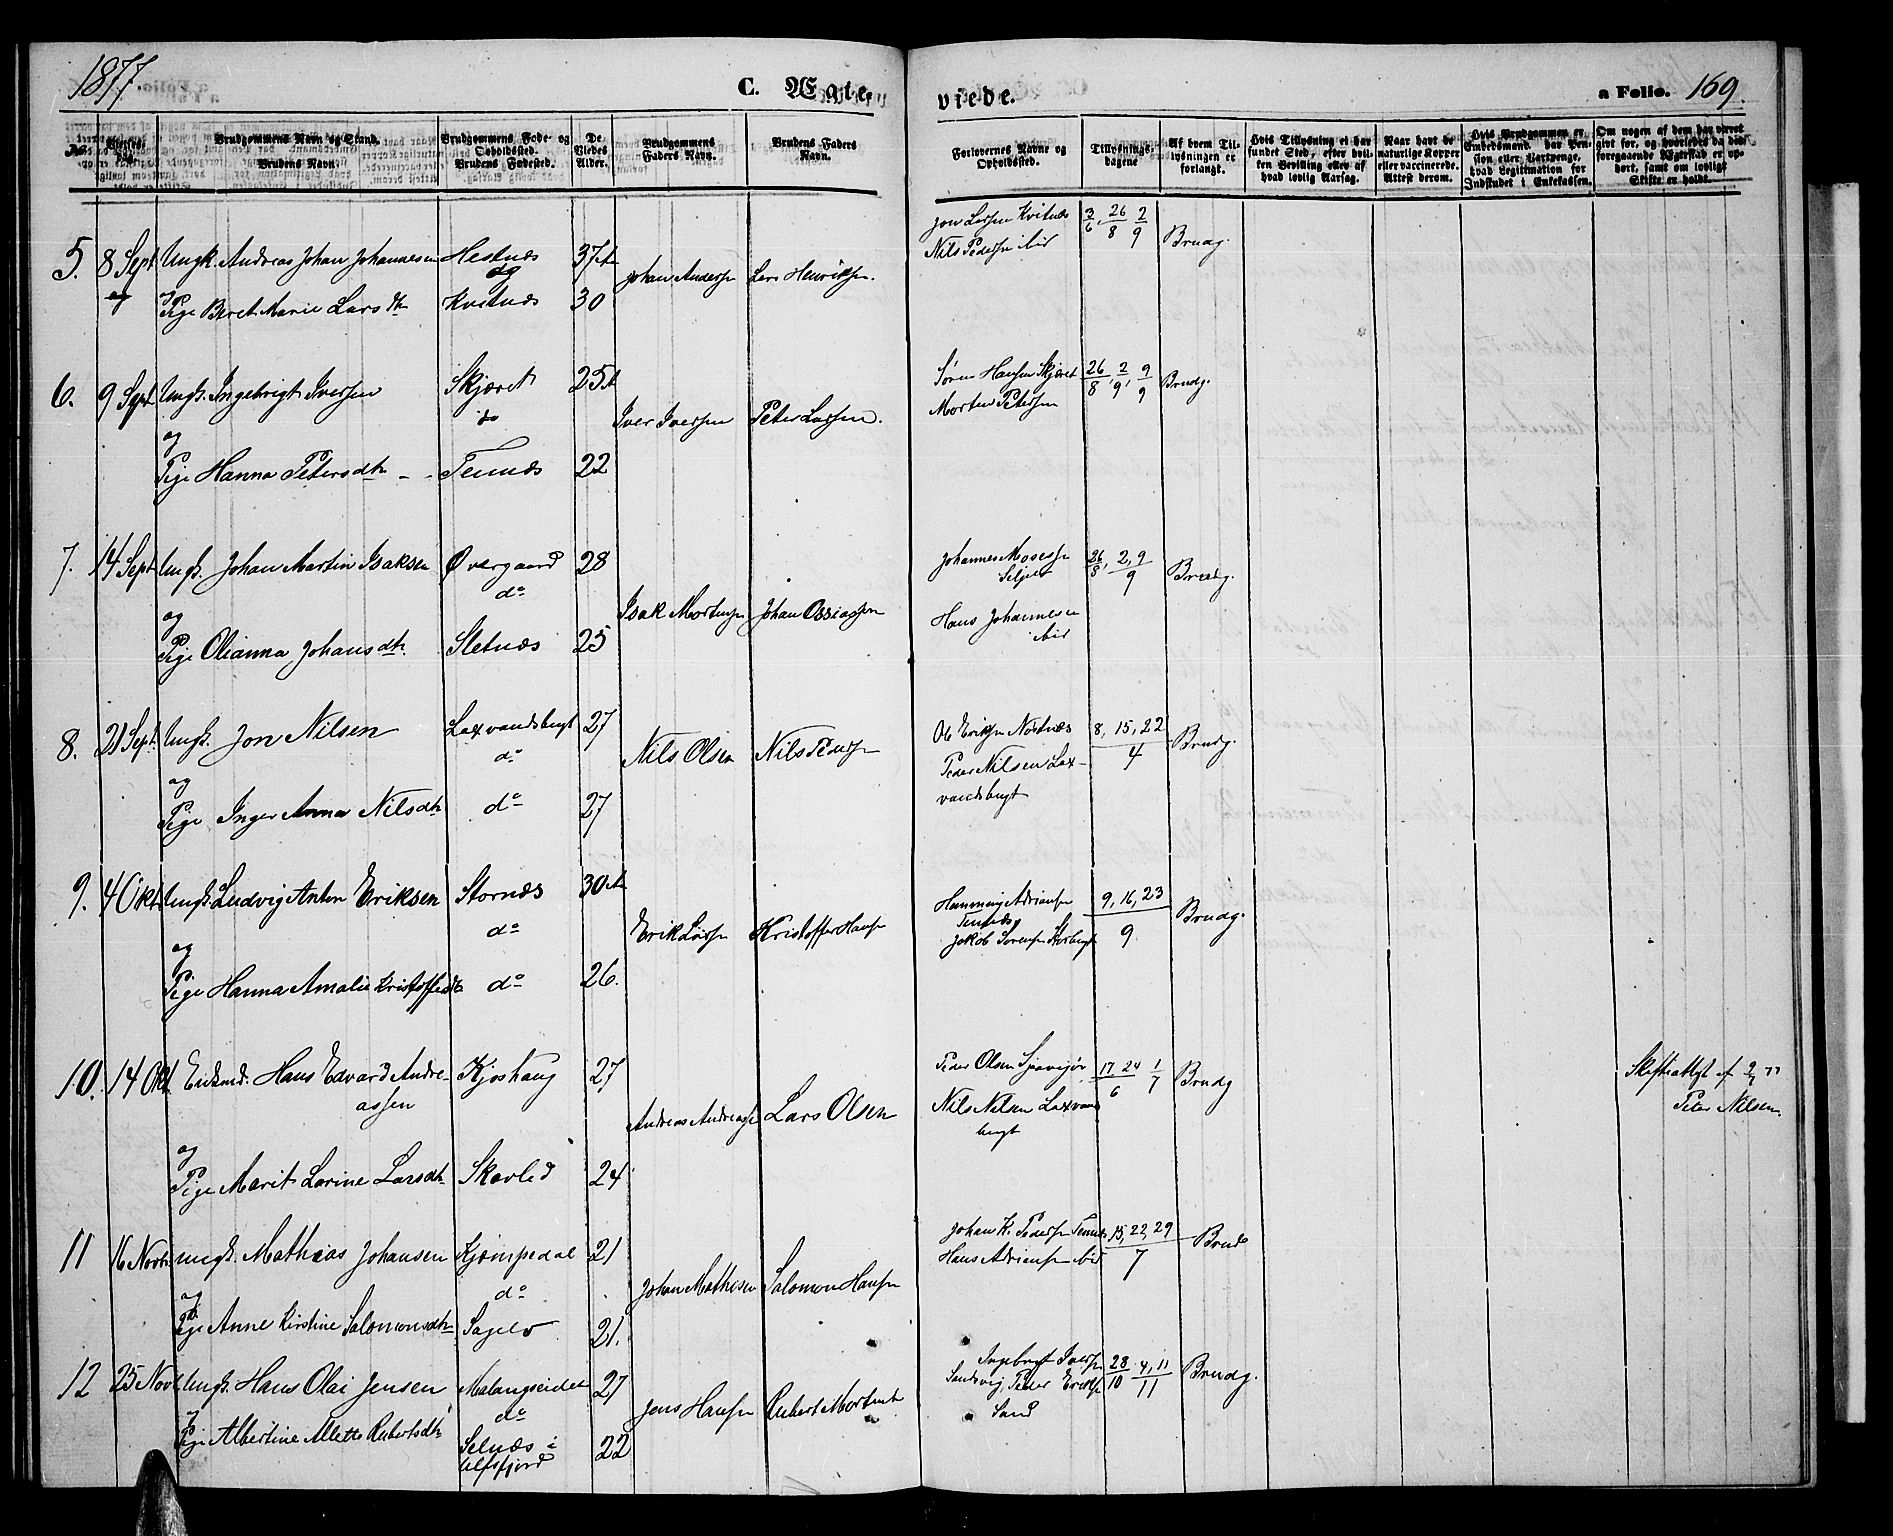 1877.
C. Ægte-
viede.
a Folio. 169.
No.
Vielses-
dag.
Brudgommens Navn og Stand.
Brudens Navn.
Brudgommens Føde- og
Opholdssted.
Brudens Fødested.
De
Viedes
Alder.
Brudgommens
Faders Navn.
Brudens Faders
Navn.
Forlovernes Navne og
Opholdssted.
Tillysnings-
dagene
Af hvem Til-
lysningen er
forlangt.
Hvis Tillysning ei har
fundet Sted, efter hvil-
ken Bevilling eller af
hvad lovlig Aarsag.
Naar havt de
naturlige Kopper
eller vaccinerede.
Attest derom.
Hvis Brudgommen er
Embedsmand, har Pen-
sion eller Vartpenge,
hvad Legitimation for
Indskudet i Enkekassen.
Om nogen af dem har været
givt før, og hvorledes da det
foregaaende Ægteskab er op-
hørt, samt om lovligt
Skifte er holdt.
5. 8 Sept Ungk. Andreas Johan Johannesen Hestnæs 37
og
Pige Beret Marie Larsdtr Kvitnæs 30
Johan Andersen Lars Henriksen.
Jon Larsen Kvitnæs 3/6, 26/8 2/9 Brudg.
Nils Pedersen ibid
6. 9 Sept Ungk. Ingebrigt Iversen Skjæret 25
do
og
Pige Hanna Petersdtr - - Tennæs 22
Iver Iversen Peter Larsen.
Søren Hansen Skjæret 26/8, 2/9, 9/9 Brudg.
Morten Petersen
7. 14 Sept Ungk. Johan Martin Isaksen Øvergaard 28
do
og
Pige Olianna Johansdtr. Sletnæs 25
Isak Mortensen Johan Ossiassen
Johannes Mosessen 26/8, 2, 9/9 Brudg.
Hans Johannesen
ibid
8. 21 Sept. Ungk. Jon Nilsen Laxvandsbugt 27
do
og
Pige Inger Anna Nilsdtr do 27
Nils Olsen Nils Pedersen
Ole Eriksen Nordnæs 8, 15, 22/4 Brudg.
Peder Nilsen Lax-
vandsbugt
9. 4 Okt. Ungk. Ludvig Anton Eriksen Stornæs 30
do
og
Pige Hanna Amalie Kristoffersdtr do 26.
Erik Larsen Kristoffer Hansen
Hemming Adriansen 9, 16, 23/9 Brudg.
Tennæs
Jakob Sørensen Storbugt
10. 14 Okt. Enkmd. Hans Edvard Andre- Kjoshaug 27
assen
og
Pige Marit Larine Larsdtr Skavlid 24
Andreas Andreassen Lars Olsen
Peder Olsen 17, 24/6 1/7 Brudg
Nils Nilsen Laxvands
bugt
Skifteattest af 2/7 77
Peter Nilsen
11 16 Novbr. Ungk. Mathias Johansen Kjempedal 21
do
og
Pige Anne Kirstine Salomonsdtr Sagelv 21.
Johan Mathisen Salomon Hansen
Johan K. Pedersen Tennæs 15, 22, 29/7 Brud
Hans Adriansen ibid
12 25 Novb. Ungk. Hans Olai Jensen Malangseidet 27
do
og
Pige Albertine Allette Rubertsdtr Selnæs i 22
Ulfsfjord
Jens Hansen Rubert Mortensen
Ingebrigt Iversen 28/10 4, 11/11 Brudg.
Sandvig, Peder Eriksen
Sand